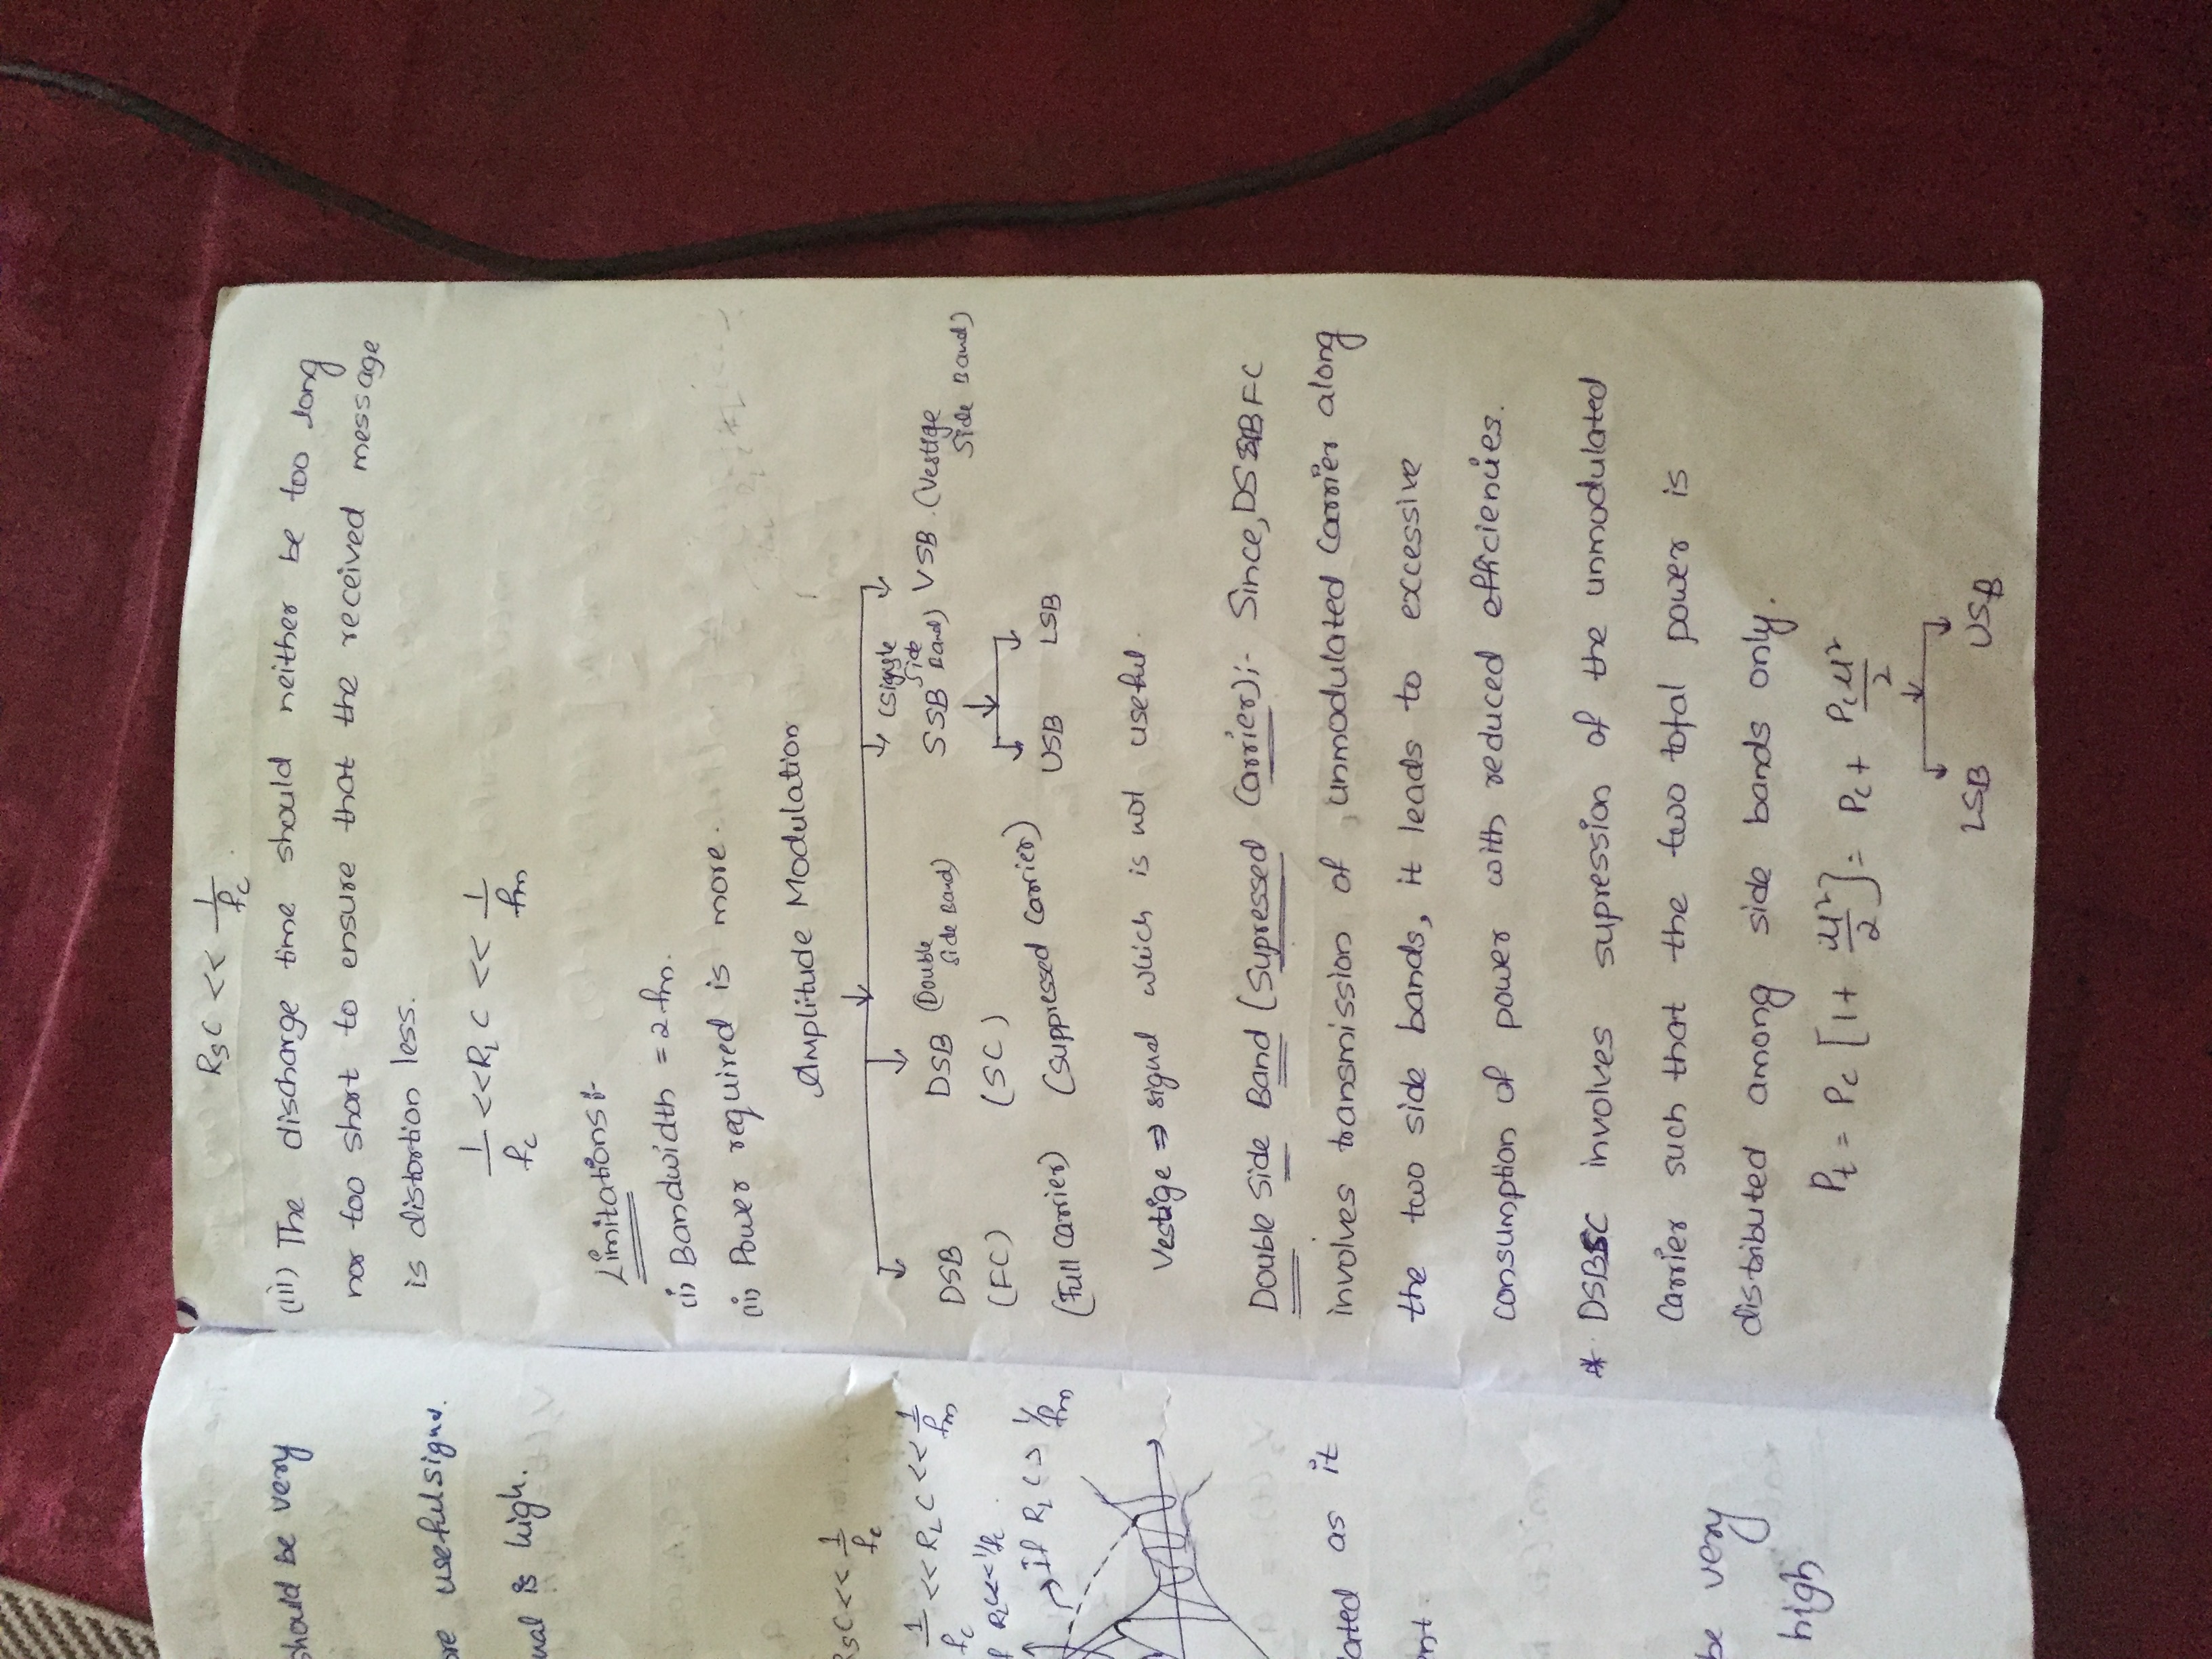 should be very
useful signal.
is high.
RsC << 1/fc
1/fc << RL C << 1/fm
If RL C > 1/fm
as it
be very
high
RsC << 1/fc
(iii) The discharge time should neither be too long
nor too short to ensure that the received message
is distortion less.
1/fc << RL C << 1/fm
Limitations:-
(i) Bandwidth = 2fm.
(ii) Power required is more.
Amplitude Modulation
DSB DSB (Double Side Band) SSB (Signgle Side Band) VSB. (Vestige Side Band)
(FC) (SC) USB LSB
(Full Carrier) (Suppressed Carrier)
Vestige ⇒ signal which is not useful.
Double Side Band (Supressed Carrier):- Since, DSBFC
involves transmission of unmodulated carrier along
the two side bands, it leads to excessive
consumption of power with reduced efficiencies.
* DSBSC involves supression of the unmodulated
Carrier such that the two total power is
distributed among side bands only.
Pt = Pc [1 + μ²/2] = Pc + Pcμ²/2
LSB USB